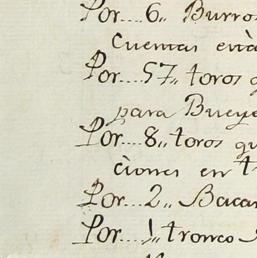 Por.... 6,, Burros
Cuentas en
Por.... 57,, toros q
para Bueye
Por.... 8,, toros qu
ciones en t
Por.... 2,, Bacas
Por.... 1,, tronco